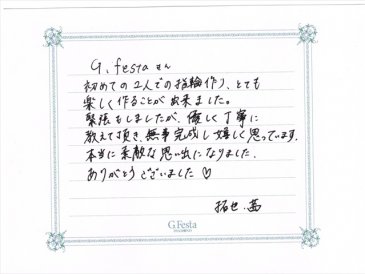 G.festa さん
初めての2人での指輪作り、とても
楽しく作ることが出来ました。
緊張もしましたが、優しく丁寧に
教えて頂き、無事完成し嬉しく思っています。
本当に素敵な思い出になりました。
ありがとうございました♡
拓也、茜
G.Festa